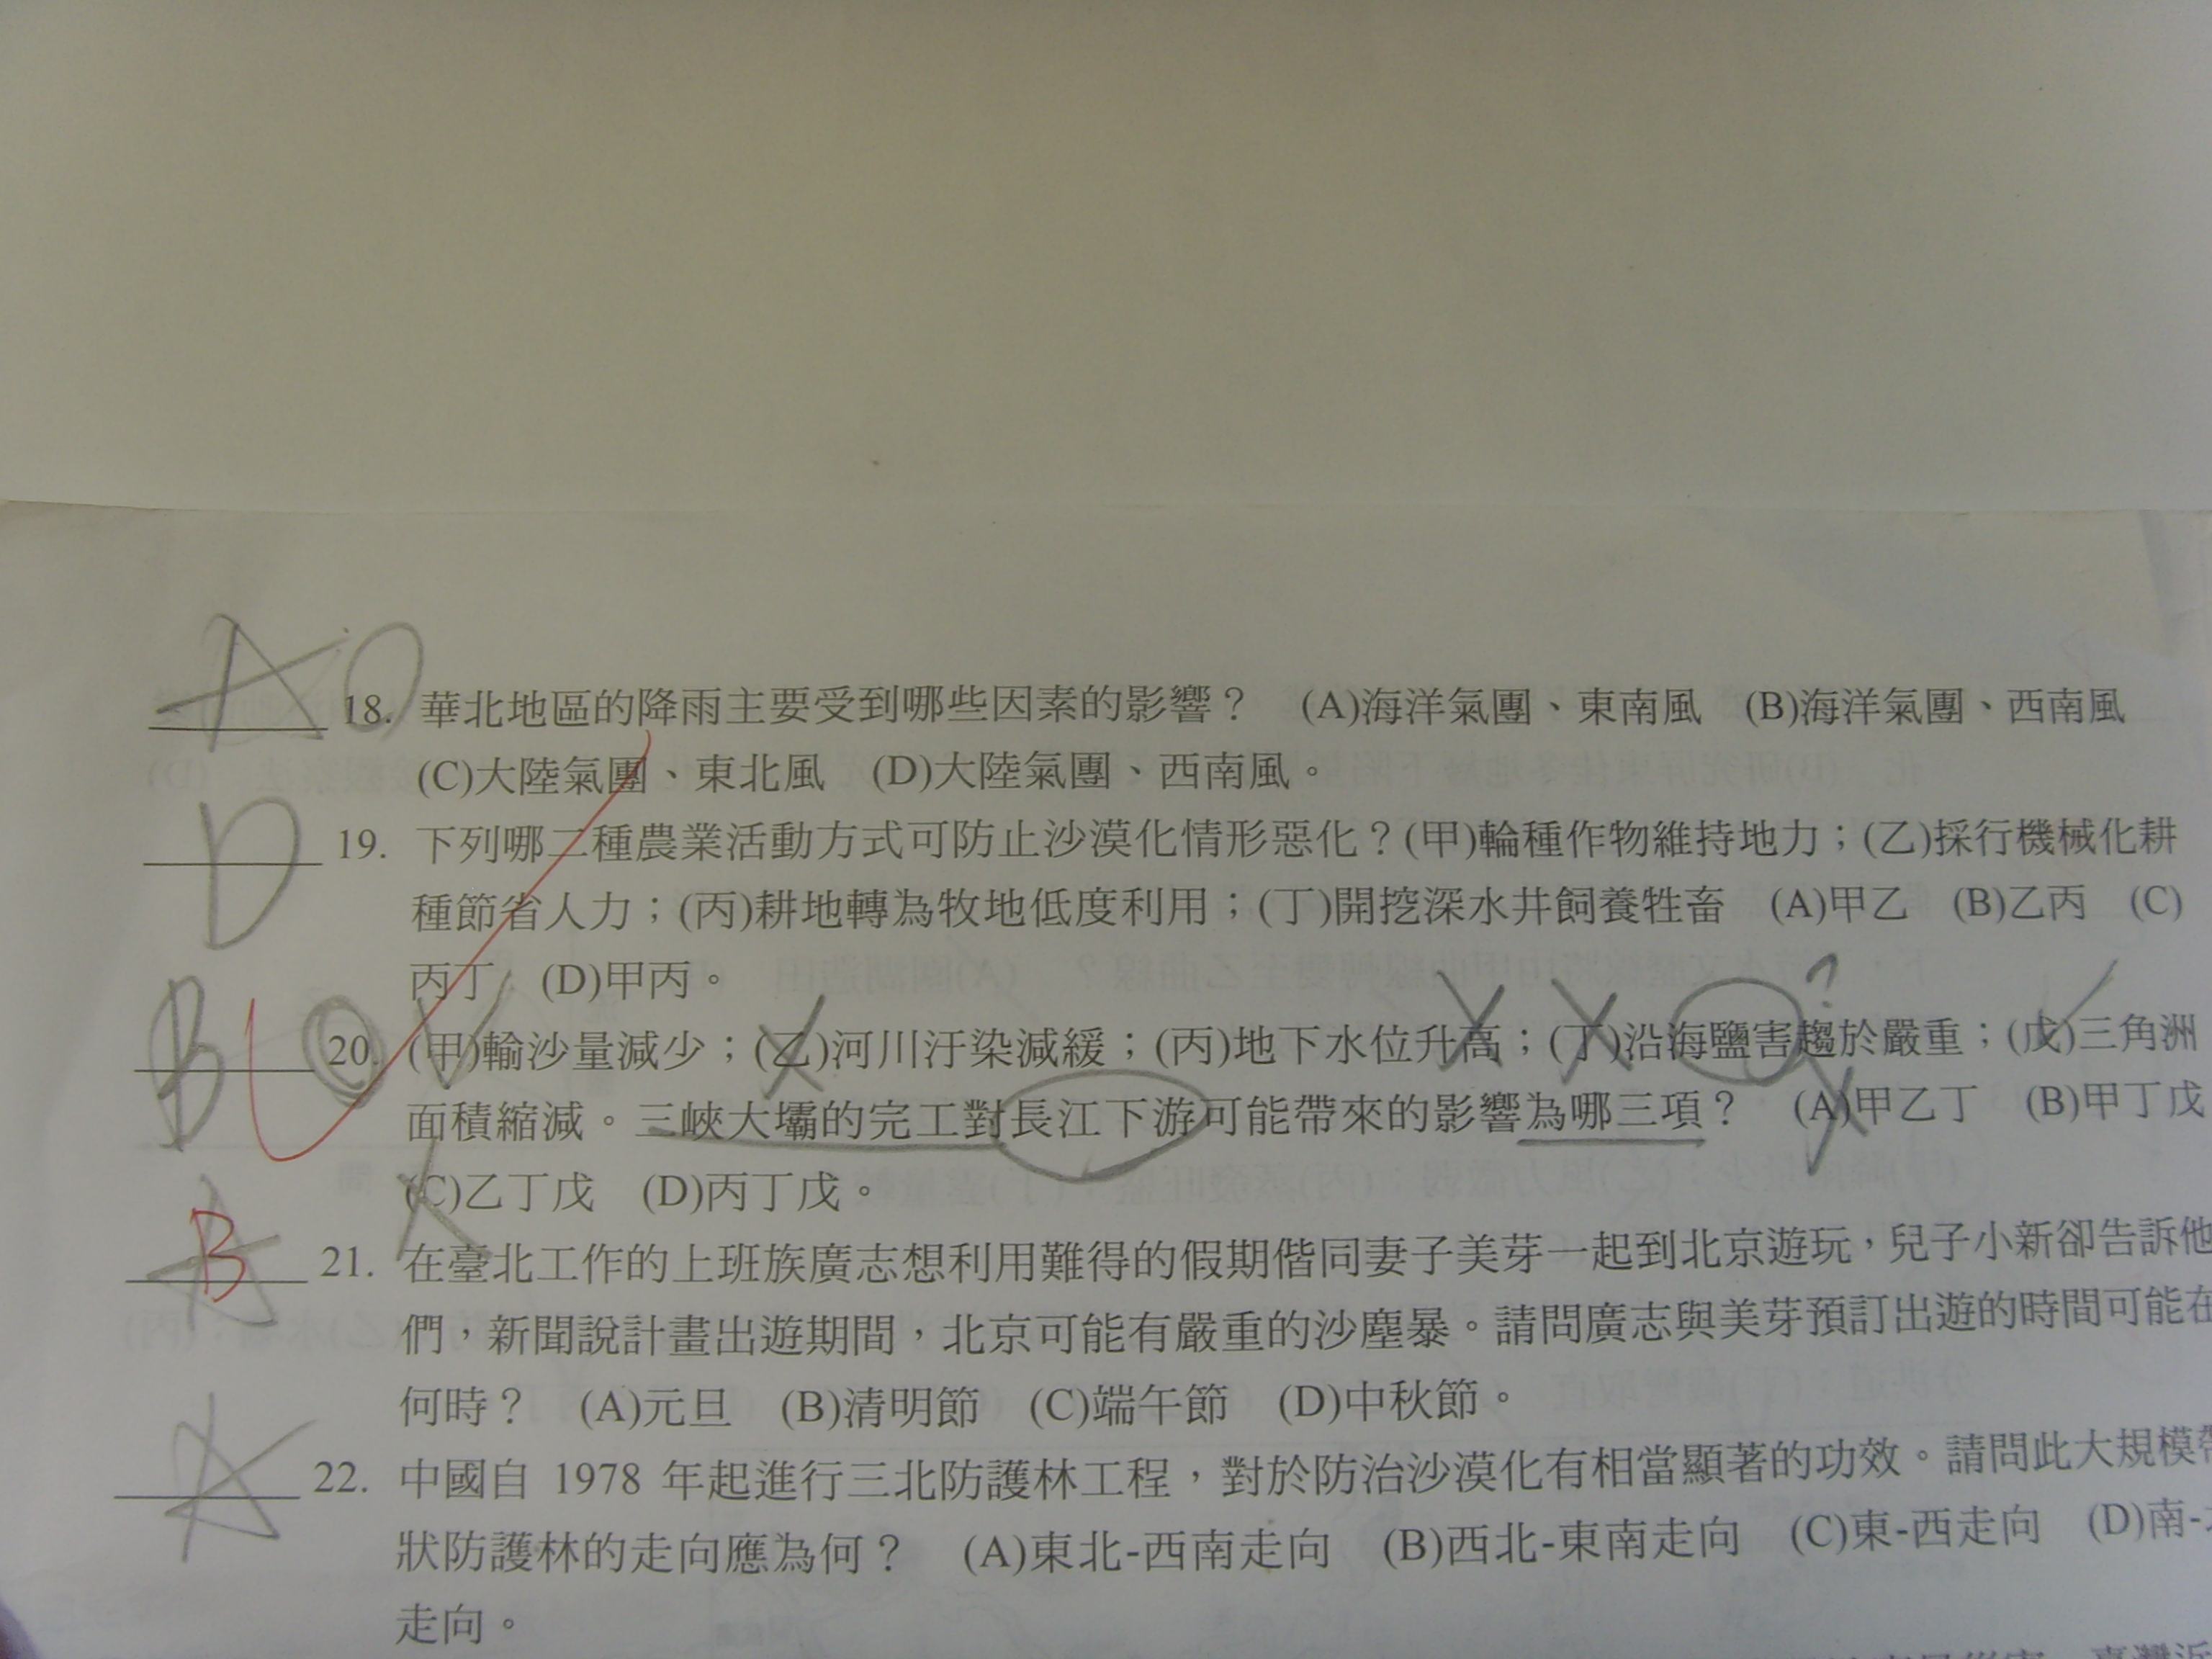 A 18. 華北地區的降雨主要受到哪些因素的影響？ (A)海洋氣團、東南風 (B)海洋氣團、西南風
(C)大陸氣團、東北風 (D)大陸氣團、西南風。
D 19. 下列哪二種農業活動方式可防止沙漠化情形惡化？(甲)輪種作物維持地力；(乙)採行機械化耕
種節省人力；(丙)耕地轉為牧地低度利用；(丁)開挖深水井飼養牲畜 (A)甲乙 (B)乙丙 (C)
丙丁 (D)甲丙。
?
B 20. (甲)輸沙量減少；(乙)河川汙染減緩；(丙)地下水位升高；(丁)沿海鹽害趨於嚴重；(戊)三角洲
面積縮減。三峽大壩的完工對長江下游可能帶來的影響為哪三項？ (A)甲乙丁 (B)甲丁戊
(C)乙丁戊 (D)丙丁戊。
A B 21. 在臺北工作的上班族廣志想利用難得的假期偕同妻子美芽一起到北京遊玩，兒子小新卻告訴他
們，新聞說計畫出遊期間，北京可能有嚴重的沙塵暴。請問廣志與美芽預訂出遊的時間可能在
何時？ (A)元旦 (B)清明節 (C)端午節 (D)中秋節。
A 22. 中國自 1978 年起進行三北防護林工程，對於防治沙漠化有相當顯著的功效。請問此大規模帶
狀防護林的走向應為何？ (A)東北-西南走向 (B)西北-東南走向 (C)東-西走向 (D)南-
走向。